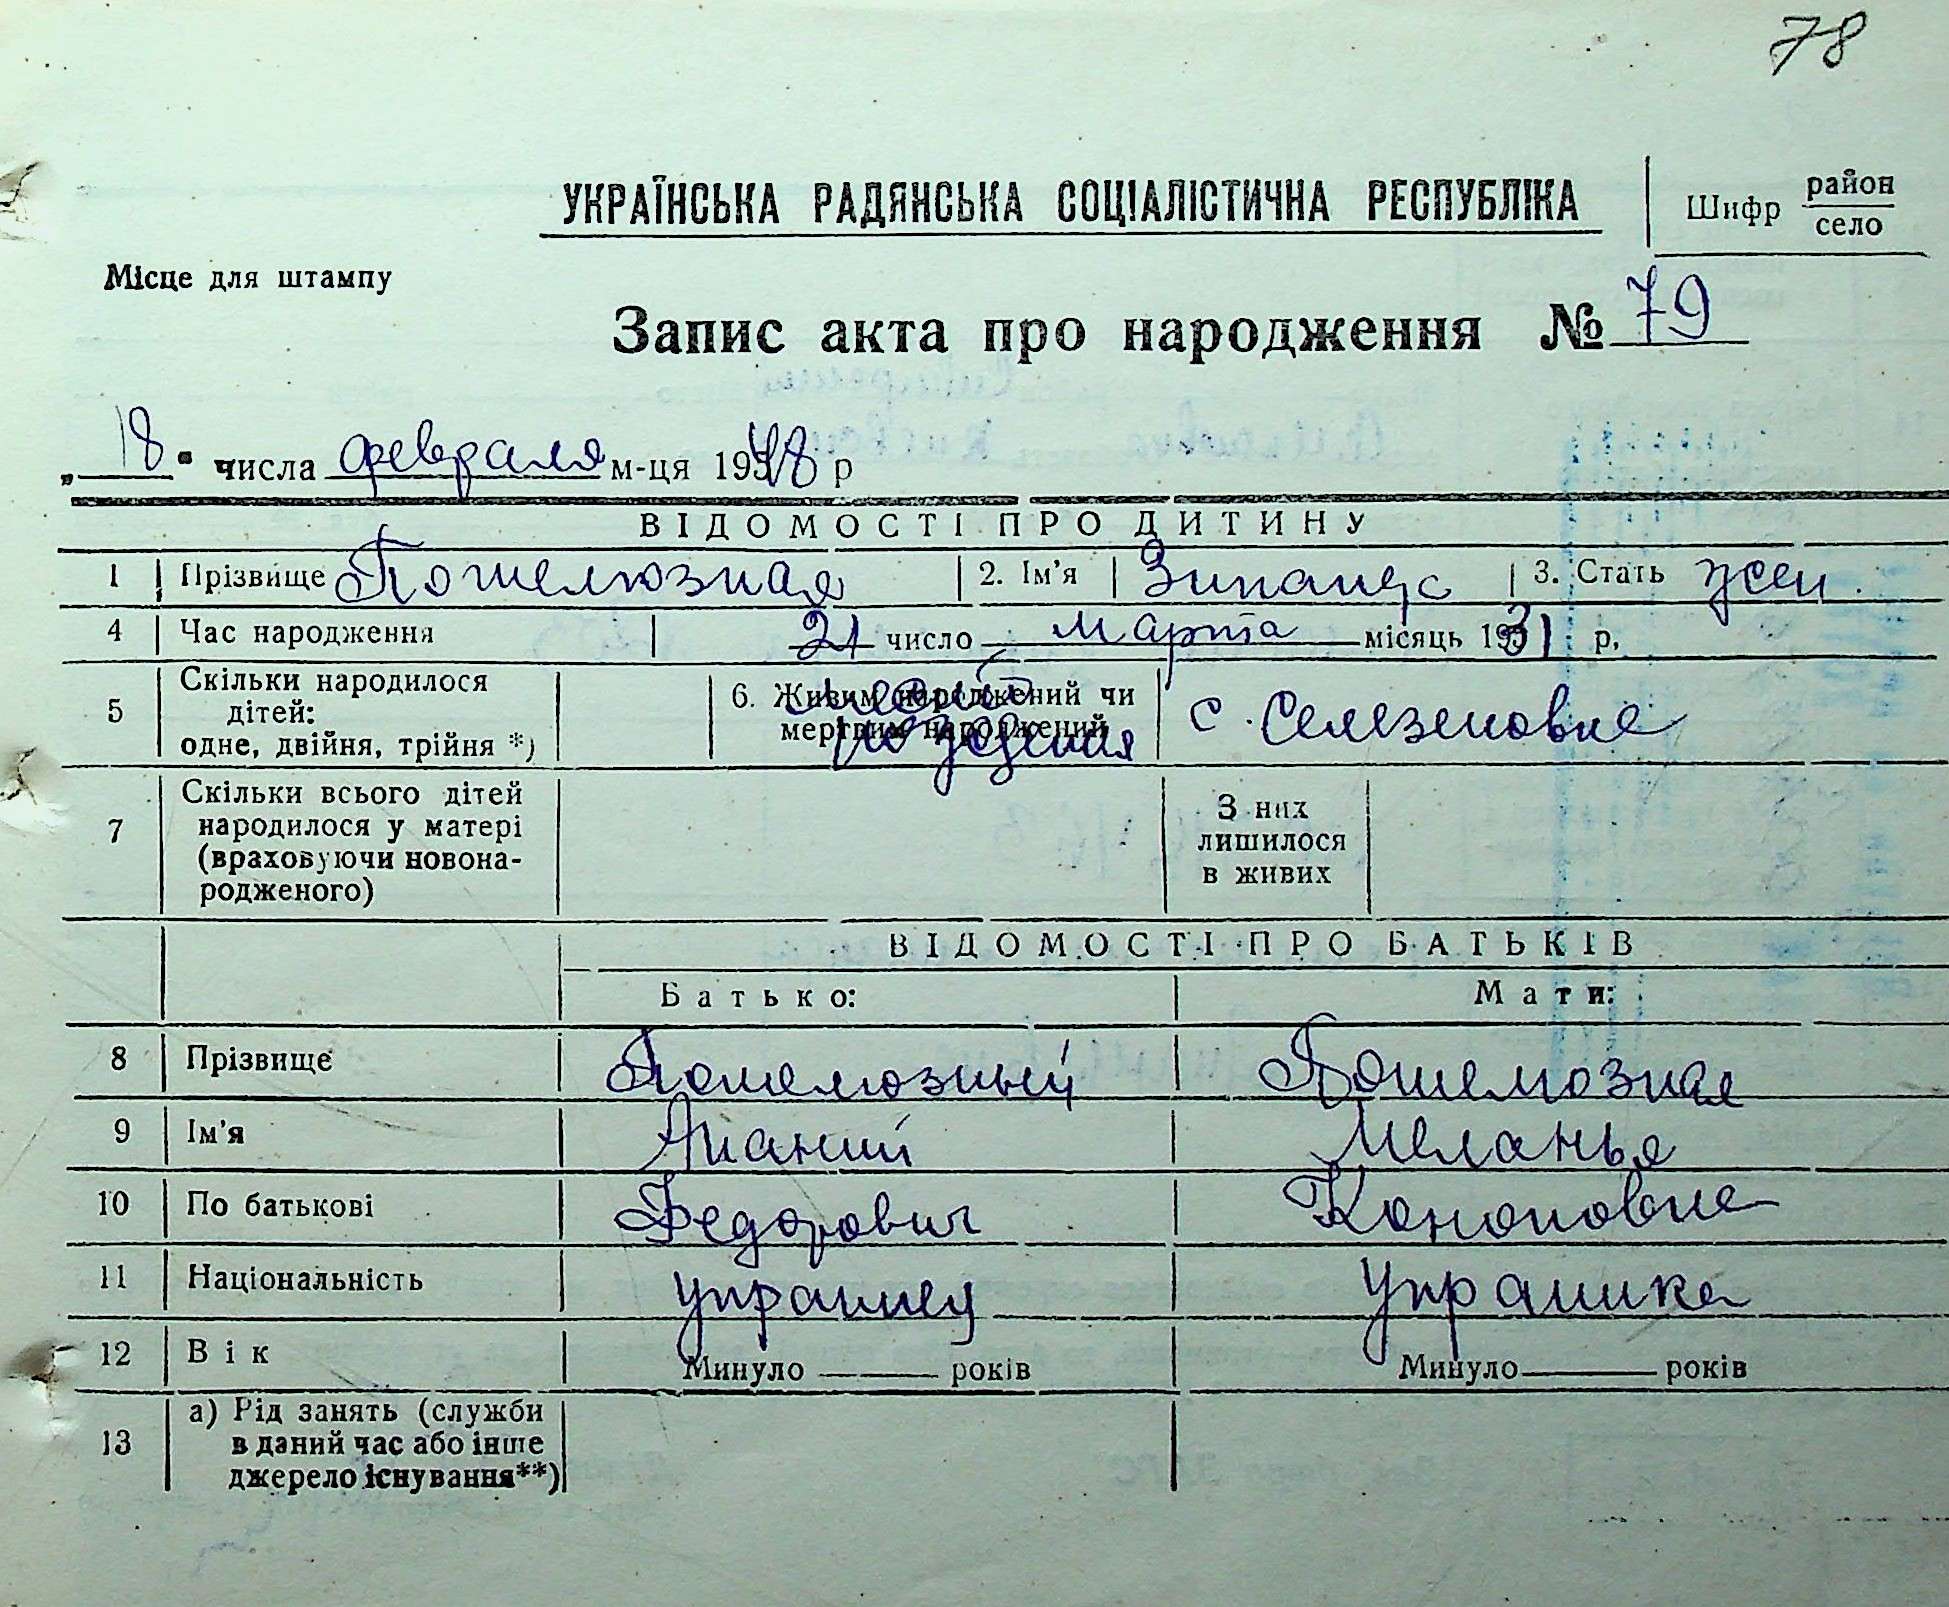 78
УКРАЇНСЬКА РАДЯНСЬКА СОЦІАЛІСТИЧНА РЕСПУБЛІКА
Шифр район
село
Місце для штампу
Запис акта про народження № 79
„ 18 " числа февраля м-ця 1948 р
ВІДОМОСТІ ПРО ДИТИНУ
1 Прізвище Пошелюзная 2. Ім'я 3. Стать жен.
4 Час народження 21 число марта місяць 1931 р.
5 Скільки народилося дітей: одне, двійня, трійня *) 6. Живим народжений чи мертвим народжений место рождения с. Селезеновке
7 Скільки всього дітей народилося у матері (враховуючи новона-
родженого) З них лишилося в живих
ВІДОМОСТІ ПРО БАТЬКІВ
Батько: Мати:
8 Прізвище Пошелюзный Пошелюзная
9 Ім'я Ананий Меланья
10 По батькові Федорович Кононовна
11 Національність украинец украинка
12 Вік Минуло років Минуло років
13 а) Рід занять (служби
в даний час або інше
джерело існування**)